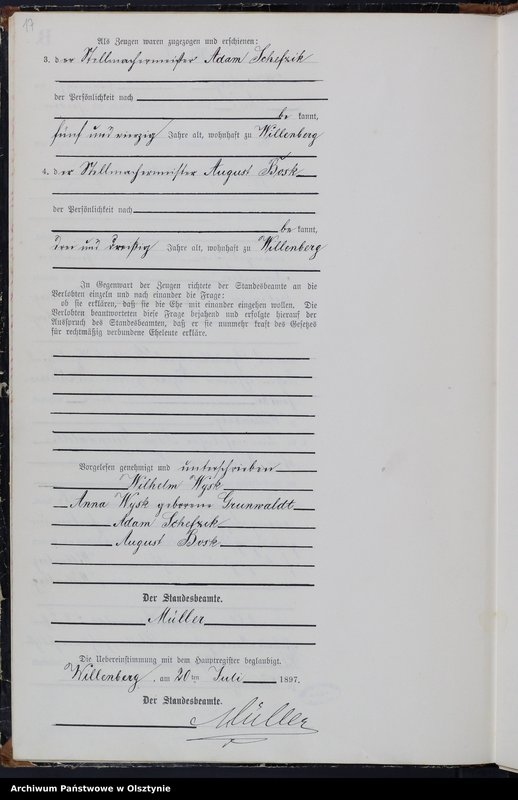 17
Als Zeugen waren zugezogen und erschienen:
3. der Stellmachermeister Adam Schefzik
der Persönlichkeit nach
be kannt,
fünf und vierzig Jahre alt, wohnhaft zu Willenberg
4. der Stellmachermeister August Bosk
der Persönlichkeit nach
be kannt,
drei und dreißig Jahre alt, wohnhaft zu Willenberg
In Gegenwart der Zeugen richtete der Standesbeamte an die
Verlobten einzeln und nach einander die Frage:
ob sie erklären, daß sie die Ehe mit einander eingehen wollen. Die
Verlobten beantworteten diese Frage bejahend und erfolgte hierauf der
Ausspruch des Standesbeamten, daß er sie nunmehr kraft des Gesetzes
für rechtmäßig verbundene Eheleute erkläre.
Vorgelesen genehmigt und unterschrieben
Wilhelm Wysk
Anna Wysk geborene Grunwaldt
Adam Schefzik
August Bosk
Der Standesbeamte.
Müller
Die Uebereinstimmung mit dem Hauptregister beglaubigt.
Willenberg, am 20ten Juli 1897.
Der Standesbeamte.
Müller
Archiwum Państwowe w Olsztynie